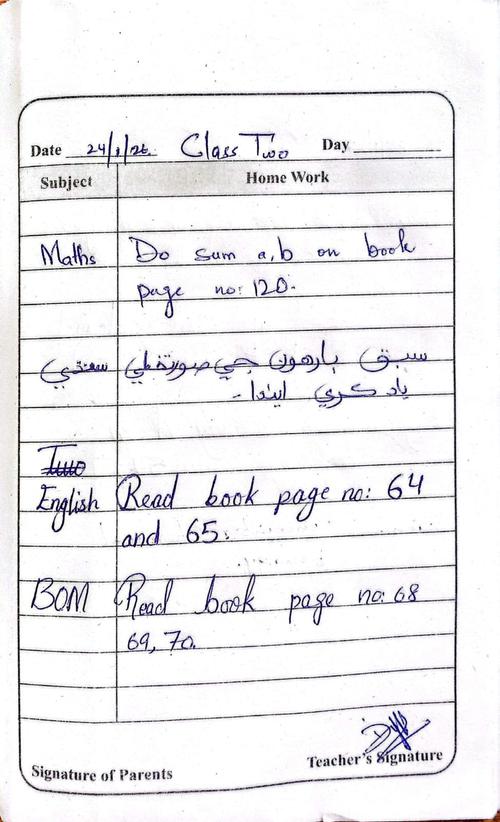 Date 24/1/26 Class Two Day
Subject Home Work
Maths Do sum a,b on book
page no: 120.
سنڌي سبق بارهون جي صورتخطي
ياد ڪري ايندا۔
English Read book page no: 64
and 65.
BOM Read book page no: 68
69, 70.
Teacher's Signature
Signature of Parents